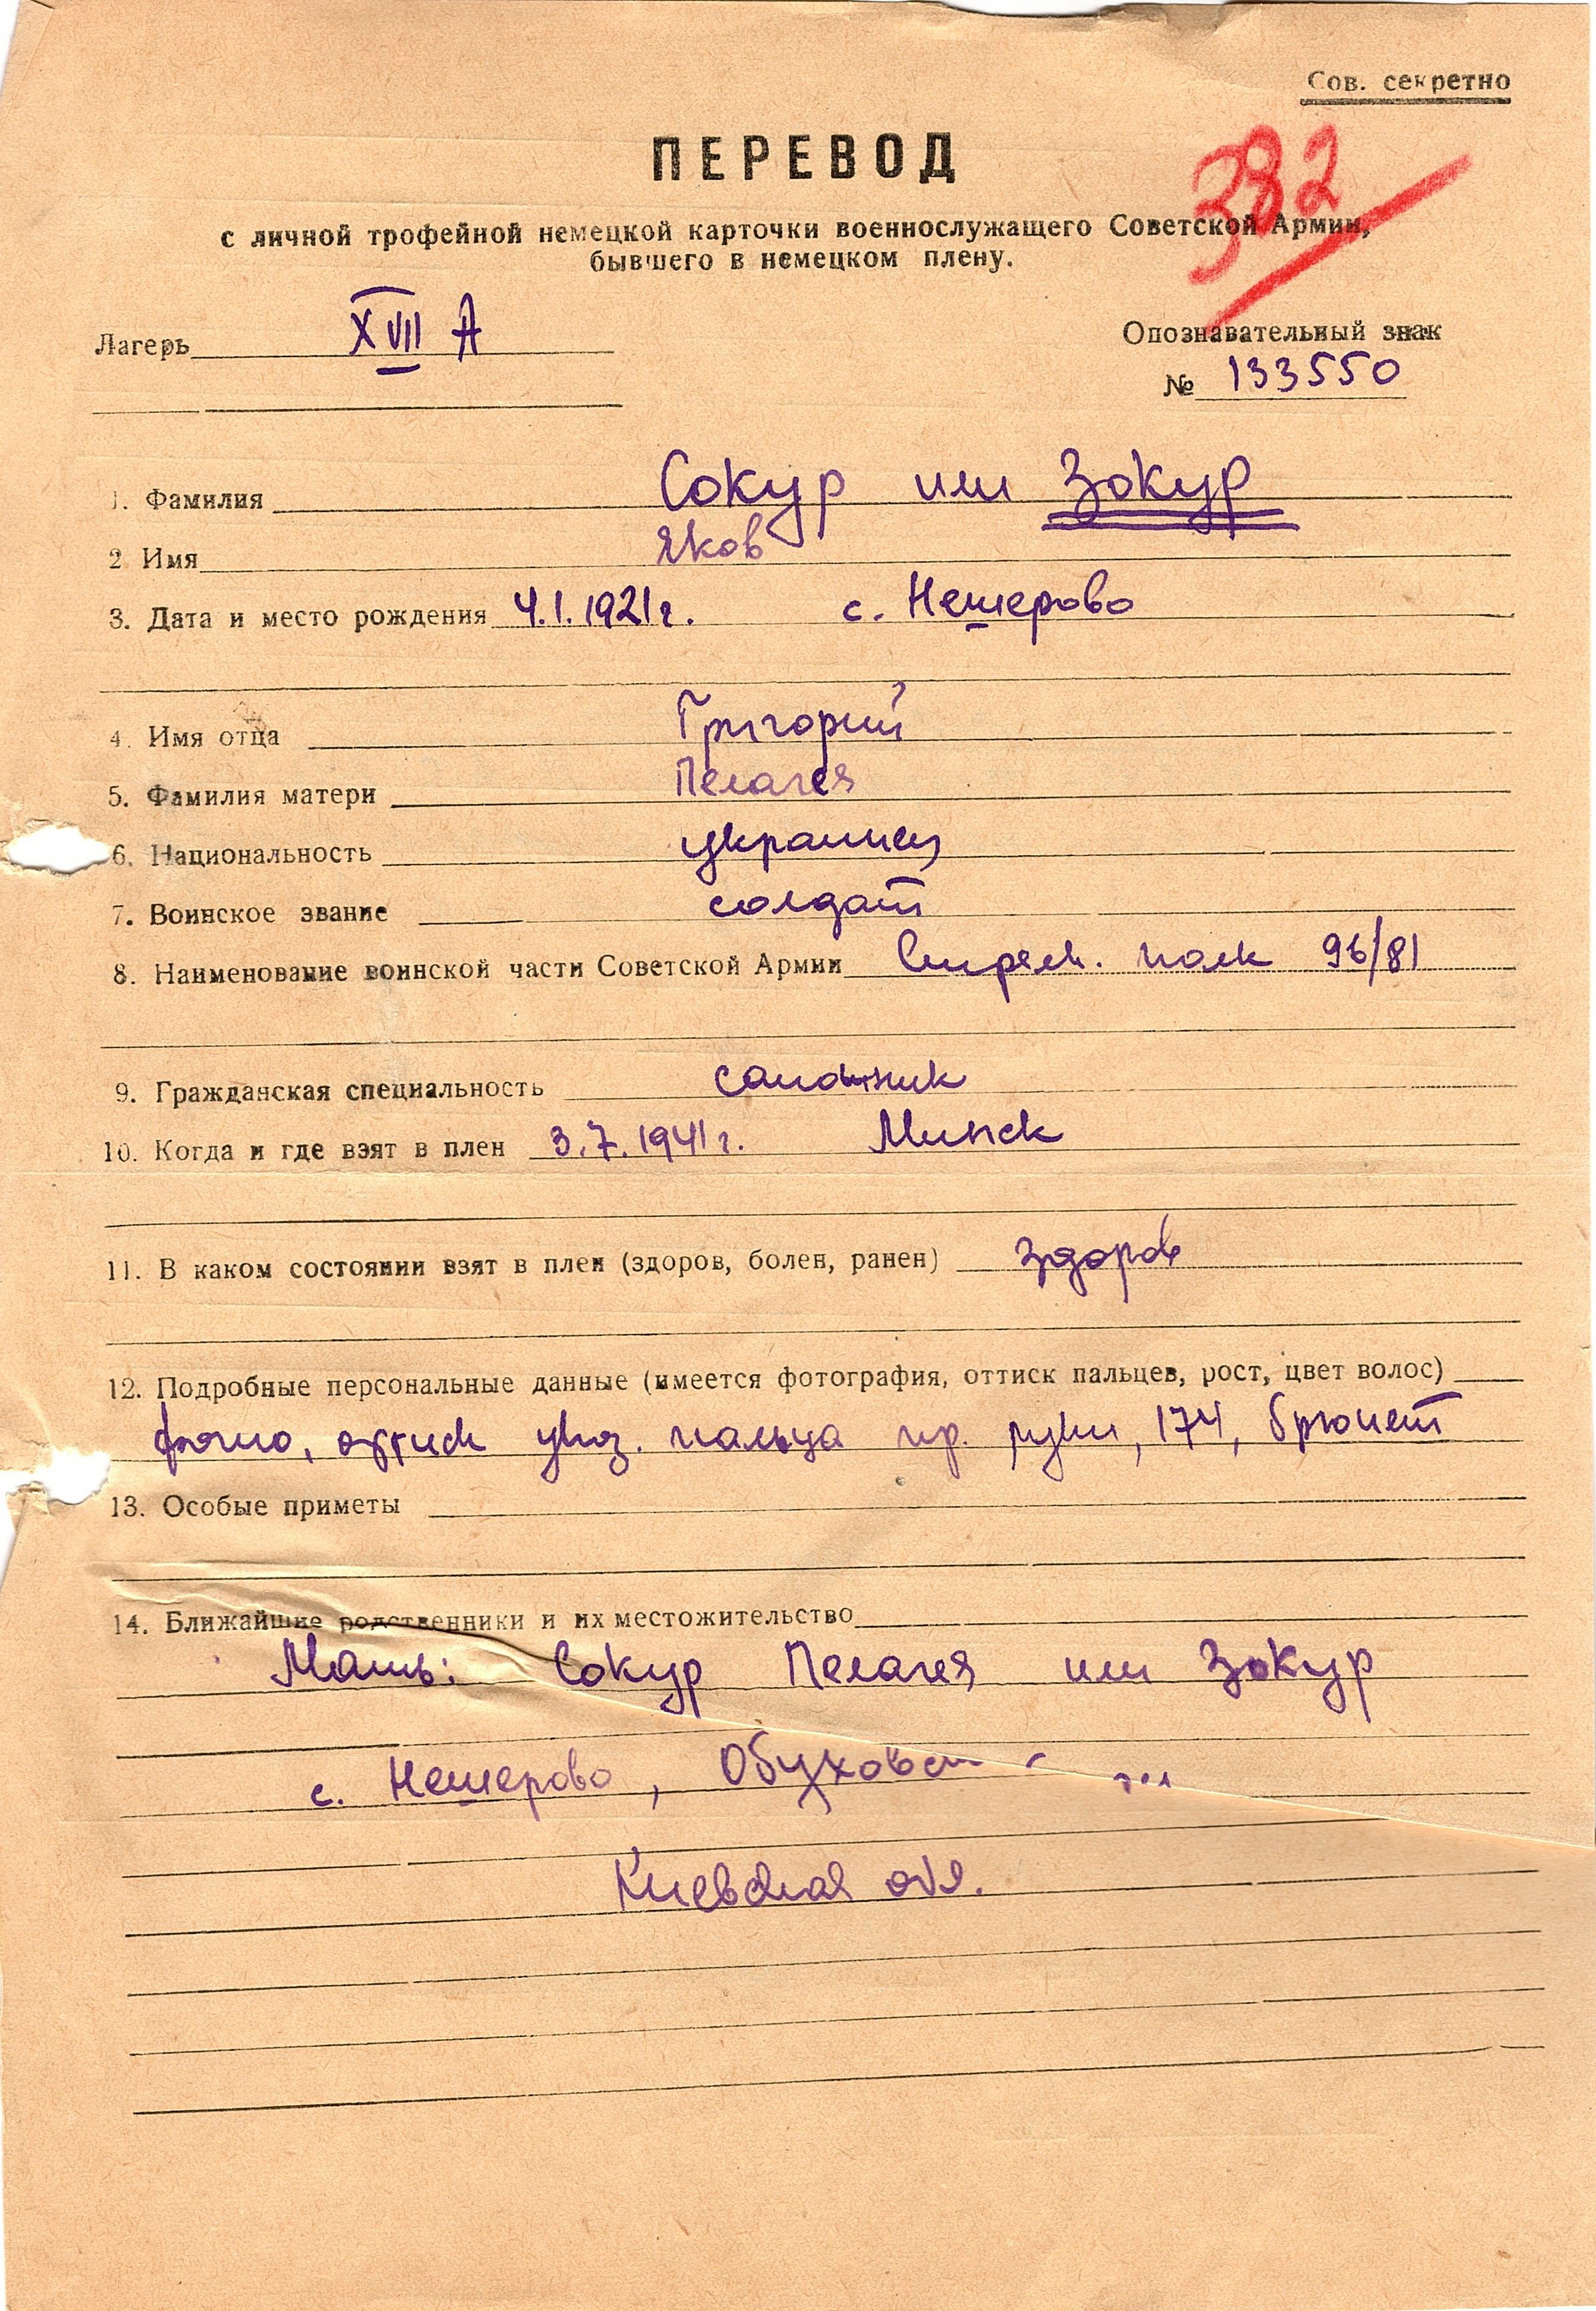 Сов. секретно
382
ПЕРЕВОД
с личной трофейной немецкой карточки военнослужащего Советской Армии,
бывшего в немецком плену.
Лагерь XVII А
Опознавательный знак
№ 133550
1. Фамилия Сокур или Зокур
2 Имя Яков
3. Дата и место рождения 4.1.1921г. с. Нещерово
4. Имя отца Григорий
5. Фамилия матери Пелагея
6. Национальность украинец
7. Воинское звание солдат
8. Наименование воинской части Советской Армии Стрелк. полк 96/81
9. Гражданская специальность сапожник
10. Когда и где взят в плен 3.7.1941г. Минск
11. В каком состоянии взят в плен (здоров, болен, ранен) здоров
12. Подробные персональные данные (имеется фотография, оттиск пальцев, рост, цвет волос)
фото, оттиск указ. пальца пр. руки, 174, брюнет
13. Особые приметы
14. Ближайшие родственники и их местожительство
Мать: Сокур Пелагея или Зокур
с. Нешерово,
Киевская обл.